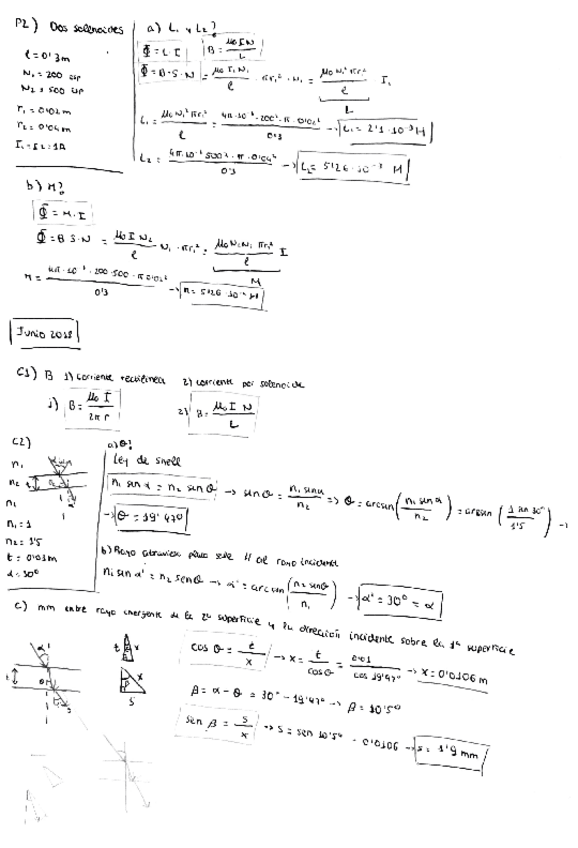 P2) Dos solenoides
l = 0'3m
N₁ = 200 esp
N₂ = 500 esp
r₁ = 0'02m
r₂ = 0'04m
I₁ = I₂ = 1A
a) L₁ y L₂?
Φ = L·I
B = μ₀ I N / L
Φ = B·S·N = μ₀ I₁ N₁ / l · πr₁² · N₁ = μ₀ N₁² πr₁² / l I₁
L
L₁ = μ₀ N₁² πr₁² / l = 4π·10⁻⁷·200²·π·0'02² / 0'3 → L₁ = 2'1·10⁻⁴ H
L₂ = 4π·10⁻⁷·500²·π·0'04² / 0'3 → L₂ = 5'26·10⁻³ H
b) M?
Φ = M·I
Φ = B S·N = μ₀ I N₂ / l N₁ · πr₁² = μ₀ N₂ N₁ πr₁² / l I
M
M = 4π·10⁻⁷·200·500·π·0'02² / 0'3 → M = 5'26·10⁻⁴ H
Junio 2018
C1) B 1) corriente rectilínea 2) corriente por solenoide
1) B = μ₀ I / 2π r
2) B = μ₀ I N / L
C2)
n₁
n₂
n₁
n₁ = 1
n₂ = 1'5
t = 0'01m
α = 30°
a) θ?
Ley de Snell
n₁ sin α = n₂ sen θ → sen θ = n₁ sin α / n₂ => θ = arcsen (n₁ sin α / n₂) = arcsen (1 sin 30° / 1'5) →
→ θ = 19'47°
b) Rayo atraviesa placa sale // al rayo incidente
n₁ sin α' = n₂ sen θ → α' = arcsen (n₂ senθ / n₁) → α' = 30° = α
c) mm entre rayo emergente de la 2ª superficie y la dirección incidente sobre la 1ª superficie
cos θ = t / x → x = t / cosθ = 0'01 / cos 19'47° → x = 0'0106 m
β = α - θ = 30° - 19'47° → β = 10'5°
sen β = s / x → s = sen 10'5° · 0'0106 → s = 1'9 mm